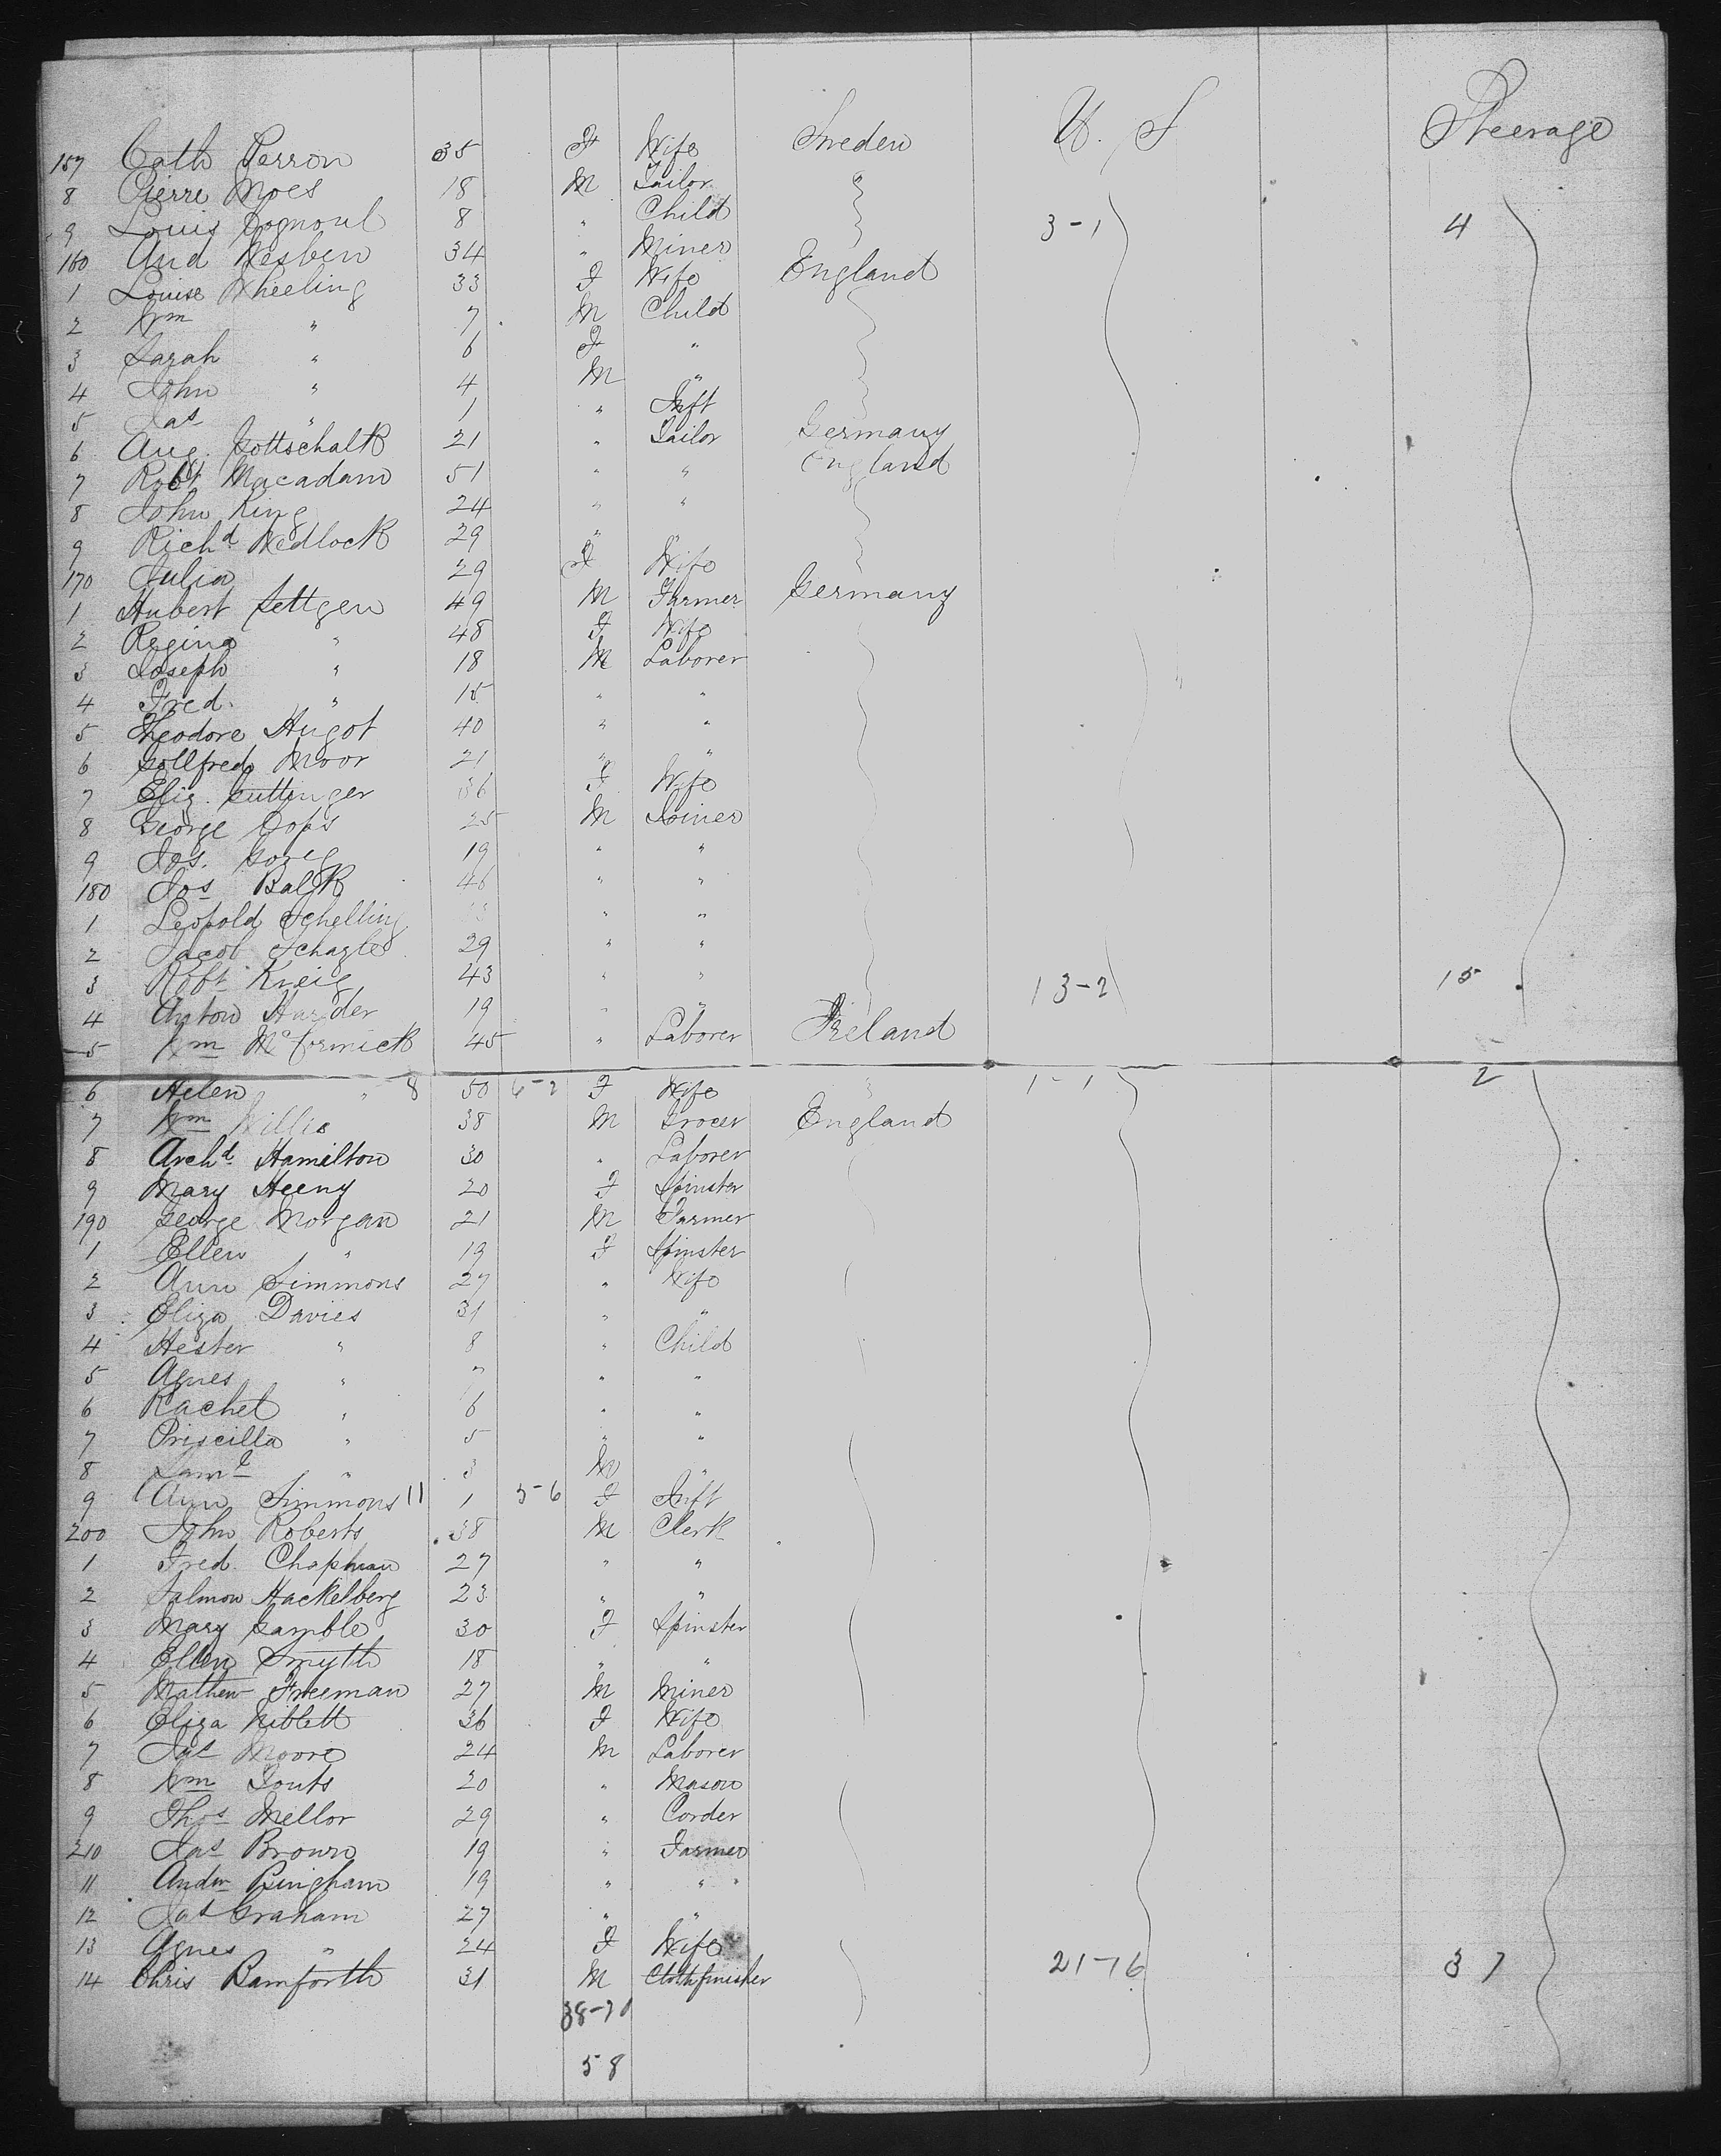 157 Cath Perron 35 F Wife Sweden U. S Steerage
8 Pierre Moes 18 M Tailor "
9 Louis 8 " Child 3-1 4
160 And Wesben 34 " Miner
1 Louise Wheeling 33 F Wife England
2 Wm " 7 M Child
3 Sarah " 6 F "
4 John " 4 M "
5 Jas " 1 " Inft
6 Aug. Gottschalk 21 " Tailor Germany
7 Robt Macadam 51 " " England
8 John King 24 " "
9 Richd Wedlock 29 " "
170 Julia 29 F Wife
1 Hubert Settgen 49 M Farmer Germany
2 Regina " 48 F Wife
3 Joseph " 18 M Laborer
4 Fred. " 15 " "
5 Theodore Hugot 40 " "
6 Gollfred Moor 21 " "
7 Eliz. Guttinger 36 F Wife
8 George Cops 25 M Joiner
9 Jos. 19 " "
180 Jos Balk 46 " "
1 Leopold Schelling " "
2 Jacob 29 " "
3 Robt Kreig 43 " " 13-2 15
4 Anton Harder 19 " "
5 Wm McCormick 45 " Laborer Ireland
6 Helen " 8 50 6-2 F Wife 1-1 2
7 Wm Willis 38 M Grocer England
8 Archd Hamilton 30 " Laborer
9 Mary Heeny 20 F Spinster
190 George Morgan 21 M Farmer
1 Ellen " 19 F Spinster
2 Ann Simmons 27 " Wife
3 Eliza Davies 31 " "
4 Hester " 8 " Child
5 Agnes " 7 " "
6 Rachel " 6 " "
7 Priscilla " 5 " "
8 Saml " 3 M "
9 Ann Simmons 11 1 5-6 F Inft
200 John Roberts 38 M Clerk
1 Fred Chapman 27 " "
2 Salmon Hackelberg 23 " "
3 Mary Gamble 30 F Spinster
4 Ellen Smyth 18 " "
5 Mathew Freeman 27 M Miner
6 Eliza Niblett 36 F Wife
7 Jas Moore 24 M Laborer
8 Wm Louts 20 " Mason
9 Thos Mellor 29 " Corder
210 Jas Brown 19 " Farmer
11 Andw Bingham 19 " "
12 Jas Graham 27 " "
13 Agnes " 24 F Wife
14 Chris Bamforth 31 M Clothfinisher 21-16 37
38-20
58